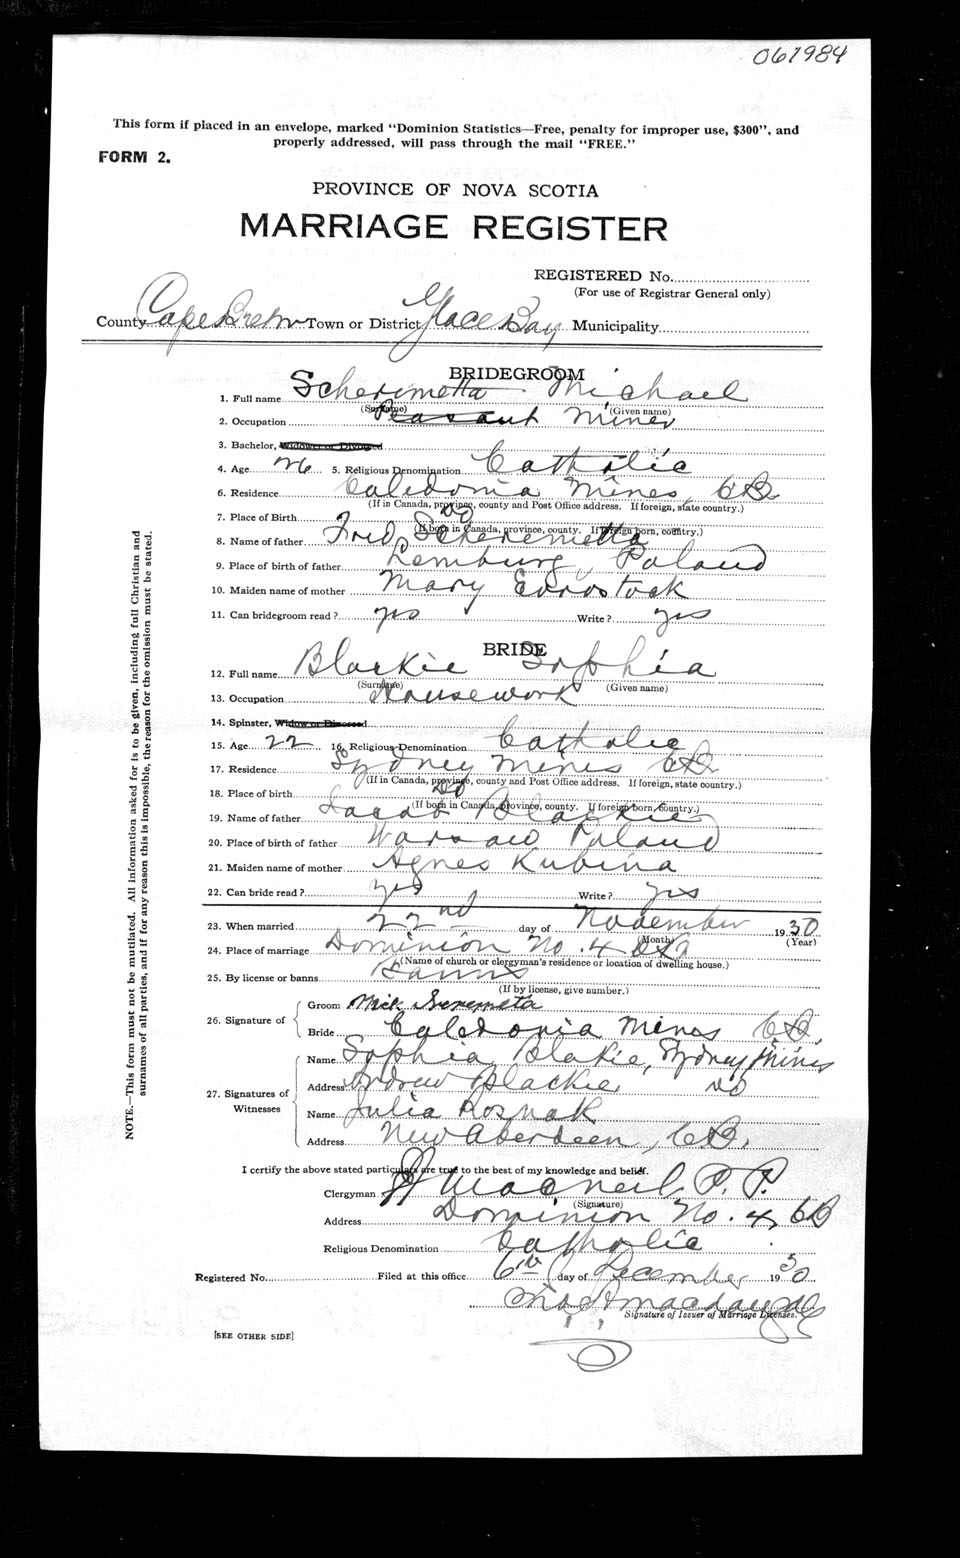 061984
This form if placed in an envelope, marked "Dominion Statistics—Free, penalty for improper use, $300", and
properly addressed, will pass through the mail "FREE."
FORM 2.
PROVINCE OF NOVA SCOTIA
MARRIAGE REGISTER
REGISTERED No.
(For use of Registrar General only)
County Cape Breton Town or District Glace Bay Municipality
BRIDEGROOM
1. Full name Scheremetta Michael
(Surname) (Given name)
2. Occupation Peasant Miner
3. Bachelor, Widower or Divorced
4. Age 26 5. Religious Denomination Catholic
6. Residence Caledonia Mines, CB
(If in Canada, province, county and Post Office address. If foreign, state country.)
7. Place of Birth do
(If born in Canada, province, county. If foreign born, country.)
8. Name of father Fred Scheremetta
9. Place of birth of father Lemburg, Poland
10. Maiden name of mother Mary
11. Can bridegroom read? yes Write? yes
BRIDE
12. Full name Blackie Sophia
(Surname) (Given name)
13. Occupation Housework
14. Spinster, Widow or Divorced
15. Age 22 16. Religious Denomination Catholic
17. Residence Sydney Mines CB
(If in Canada, province, county and Post Office address. If foreign, state country.)
18. Place of birth do
(If born in Canada, province, county. If foreign born, country.)
19. Name of father Jacob Blackie
20. Place of birth of father Warsaw Poland
21. Maiden name of mother Agnes Kubina
22. Can bride read? yes Write? yes
23. When married 22nd day of November 1930
(Month) (Year)
24. Place of marriage Dominion No. 4 CB
(Name of church or clergyman's residence or location of dwelling house.)
25. By license or banns Banns
(If by license, give number.)
26. Signature of
Groom Mick Seremeta
Bride Caledonia Mines CB,
27. Signatures of Witnesses
Name Sophia Blakie, Sydney Mines
Address Andrew Blackie, do
Name Julia Rosnak
Address New Aberdeen, CB.
I certify the above stated particulars are true to the best of my knowledge and belief.
Clergyman MacNeil P. P.
(Signature)
Address Dominion No. 4, CB
Religious Denomination Catholic
Registered No. Filed at this office 6th day of December 1930
Signature of Issuer of Marriage Licenses.
[SEE OTHER SIDE]
NOTE.—This form must not be mutilated. All information asked for is to be given, including full Christian and
surnames of all parties, and if for any reason this is impossible, the reason for the omission must be stated.